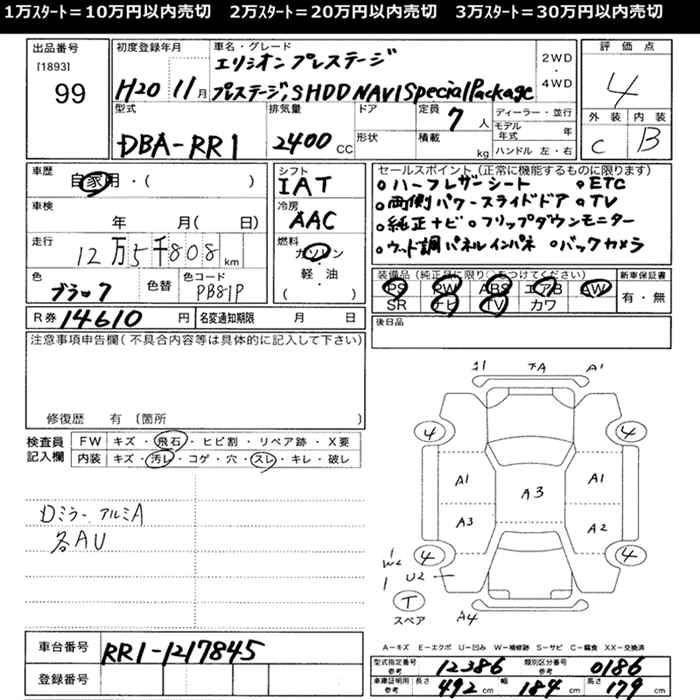 1万ｽﾀｰﾄ＝10万円以内売切　2万ｽﾀｰﾄ＝20万円以内売切　3万ｽﾀｰﾄ＝30万円以内売切
出品番号
[1893]
99
初度登録年月
H20 11月
車名・グレード
エリシオンプレステージ
プレステージ,S HDD NAVI Special Package
2WD
・
4WD
評価点
4
外装 内装
C B
型式
DBA-RR1
排気量
2400 CC
ドア
形状
定員 7人
積載 kg
ディーラー・並行
モデル年式 年
ハンドル 左・右
車歴
自家用・( )
車検
年 月( 日)
走行
12万5千808km
色
ブラック
色替
色コード
PB81P
シフト
IAT
冷房
AAC
燃料
ガソリン
・
軽・油
( )
セールスポイント(正常に機能するものに限ります)
○ハーフレザーシート ○ETC
○両側パワースライドドア ○TV
○純正ナビ ○フリップダウンモニター
○ウッド調パネルインパネ ○バックカメラ
装備品(純正品に限り○をつけてください)
PS PW ABS エアB AW
SR ナビ TV カワ
新車保証書
有・無
R券 14610円
名変通知期限 月 日
後日品
注意事項申告欄(不具合内容等は具体的に記入して下さい)
修復歴 有 (箇所 )
検査員
記入欄
FW キズ・飛石・ヒビ割・リペア跡・X要
内装 キズ・汚レ・コゲ・穴・スレ・キレ・破レ
Dミラー アルミA
各AU
下A A1
4 4
A1 A1
A3
A3 A2
4 4
W2
U2
T
スペア
A4
A－キズ E－エクボ U－凹み W－補修跡 S－サビ C－腐食 XX－交換済
車台番号 RR1-1217845
登録番号
型式指定番号
参考
12386
類別区分番号
参考
0186
車庫証明用
参考
長さ 492cm 幅 184cm 高さ 179cm